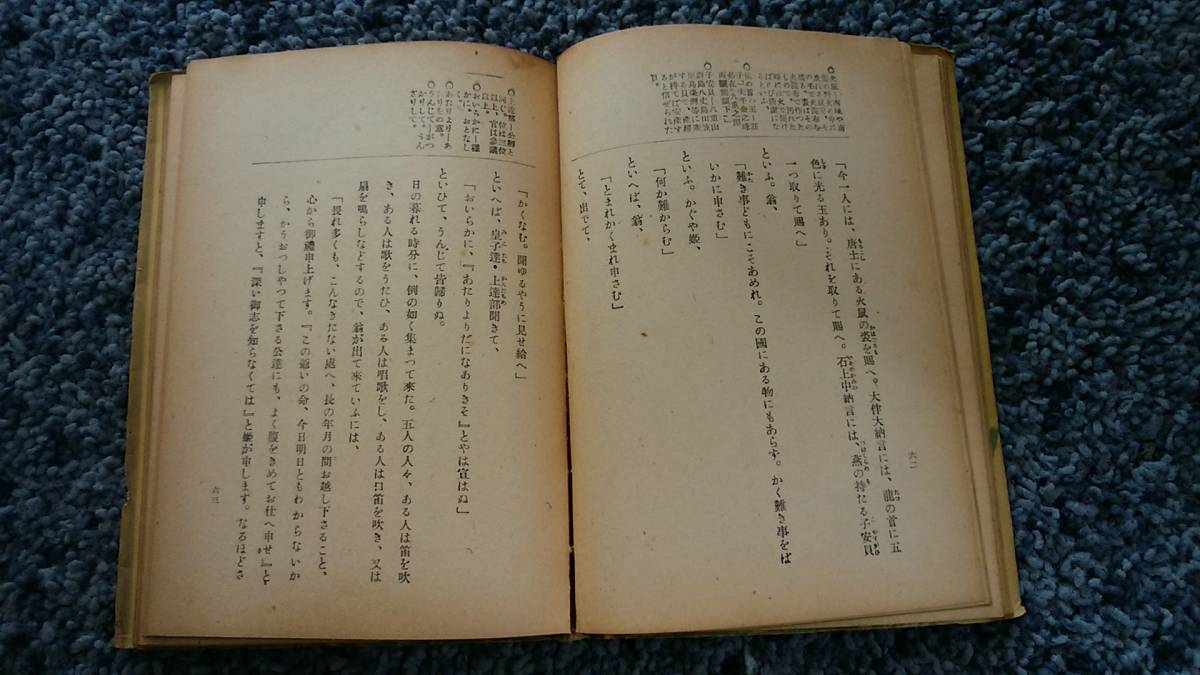 六二
「今一人には、唐土にある火鼠の裘を賜へ。大伴大納言には、龍の首に五
色に光る玉あり。それを取りて賜へ。石上中納言には、燕の持たる子安貝
一つ取りて賜へ」
といふ。翁、
「難き事どもにこそあめれ。この國にある物にもあらず。かく難き事をば
いかに申さむ」
といふ。かぐや姫、
「何か難からむ」
といへば、翁、
「とまれかくまれ申さむ」
とて、出でて、
「かくなむ。聞ゆるやうに見せ給へ」
といへば、皇子達・上達部聞きて、
「おいらかに、『あたりよりだになありきそ』とやは宣はぬ」
といひて、うんじて皆歸りぬ。
日の暮れる時分に、例の如く集まつて來た。五人の人々、ある人は笛を吹
き、ある人は歌をうたひ、ある人は唱歌をし、ある人は口笛を吹き、又は
扇を鳴らしなどするので、翁が出て來ていふには、
「畏れ多くも、こんなきたない處へ、長の年月の間お越し下さること、
心から御禮申上げます。『この爺いの命、今日明日ともわからないか
ら、かうおつしやつて下さる公達にも、よく腹をきめてお仕へ申せ』と
申しますと、『深い御志を知らなくては』と姫が申します。なるほどさ
六三